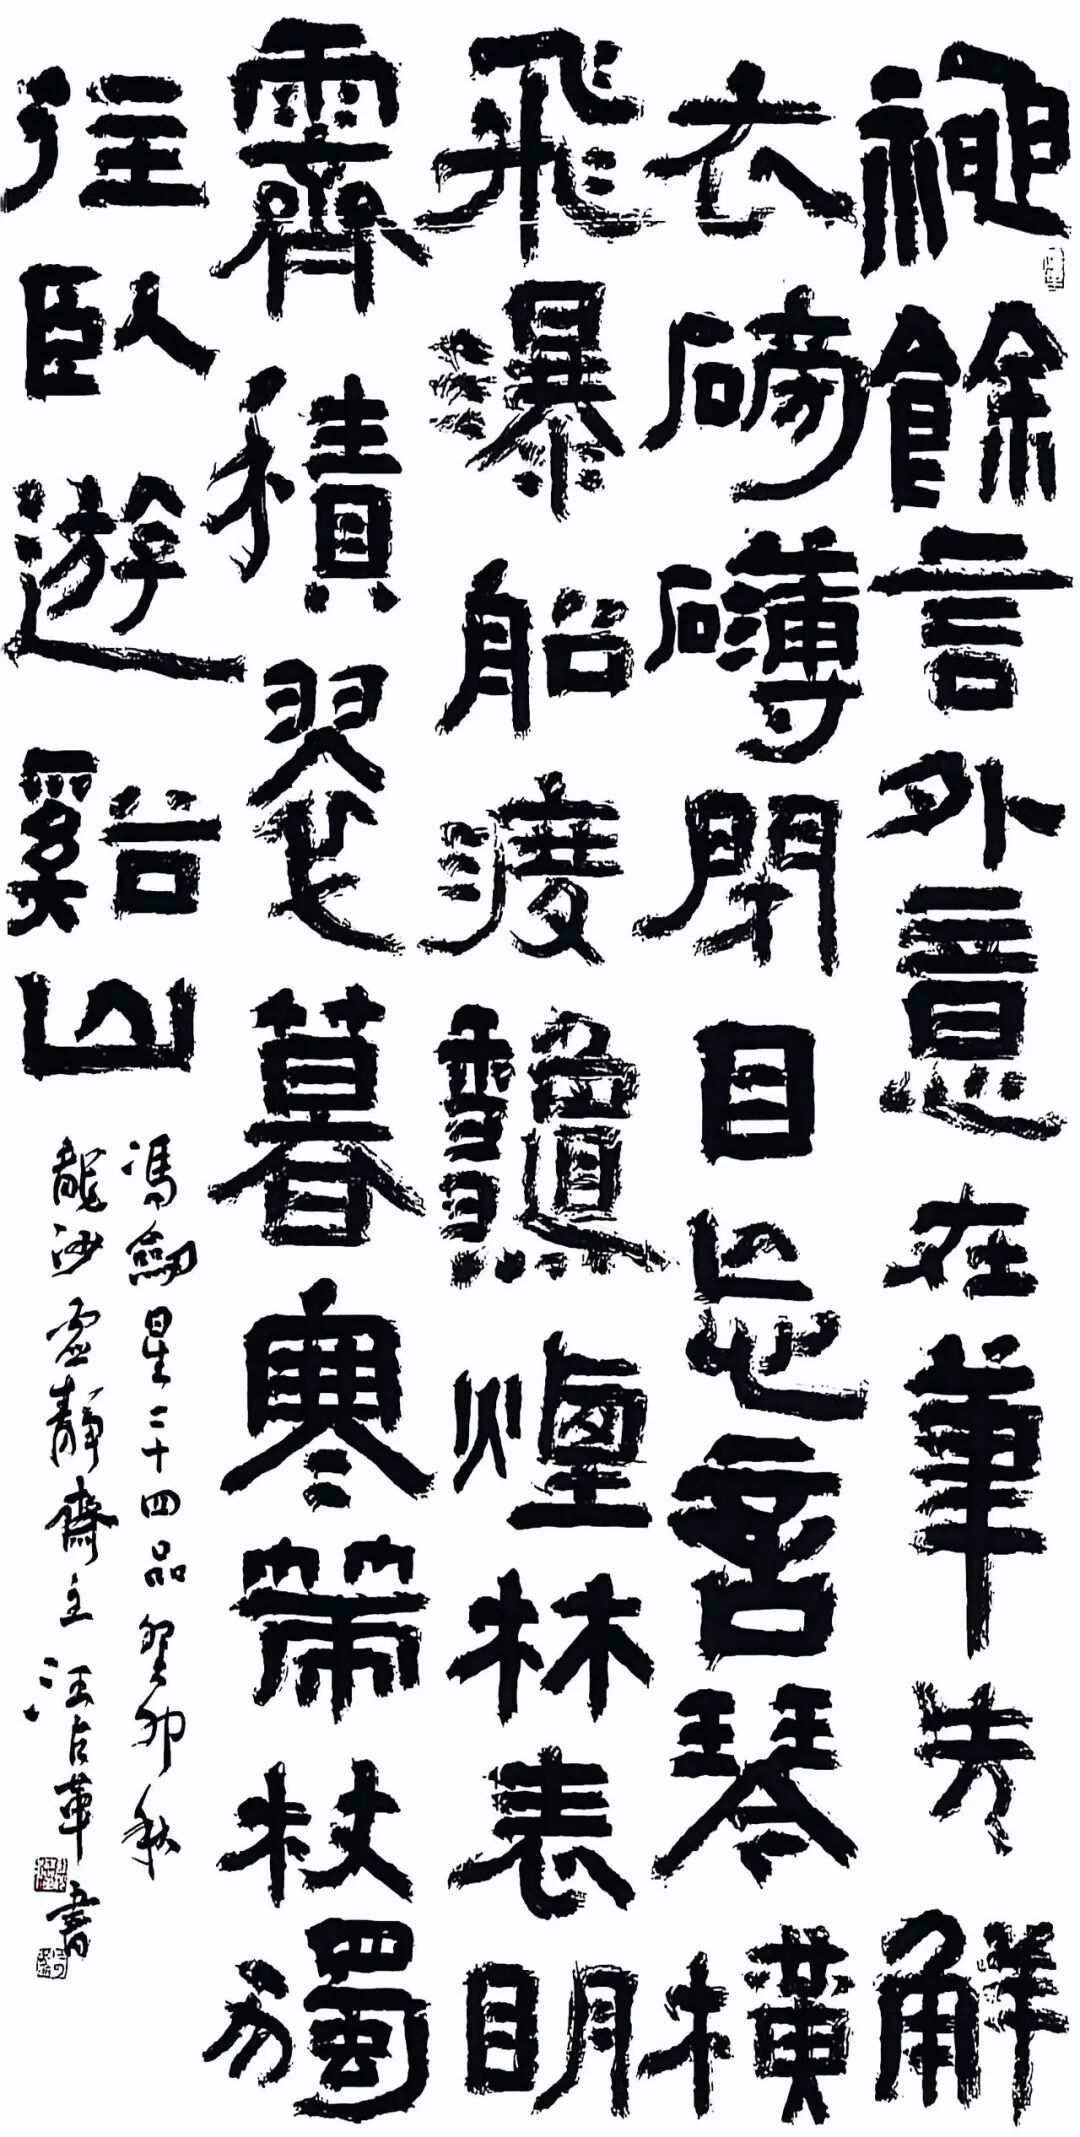 神餘言外意在筆先解
衣磅礴閉目忘言琴橫
飛瀑船渡煙林表明
霽積翠暮寒帶杖獨
往臥遊谿山
馮劍星二十四品癸卯秋
龍沙虛靜齋主汪占革書